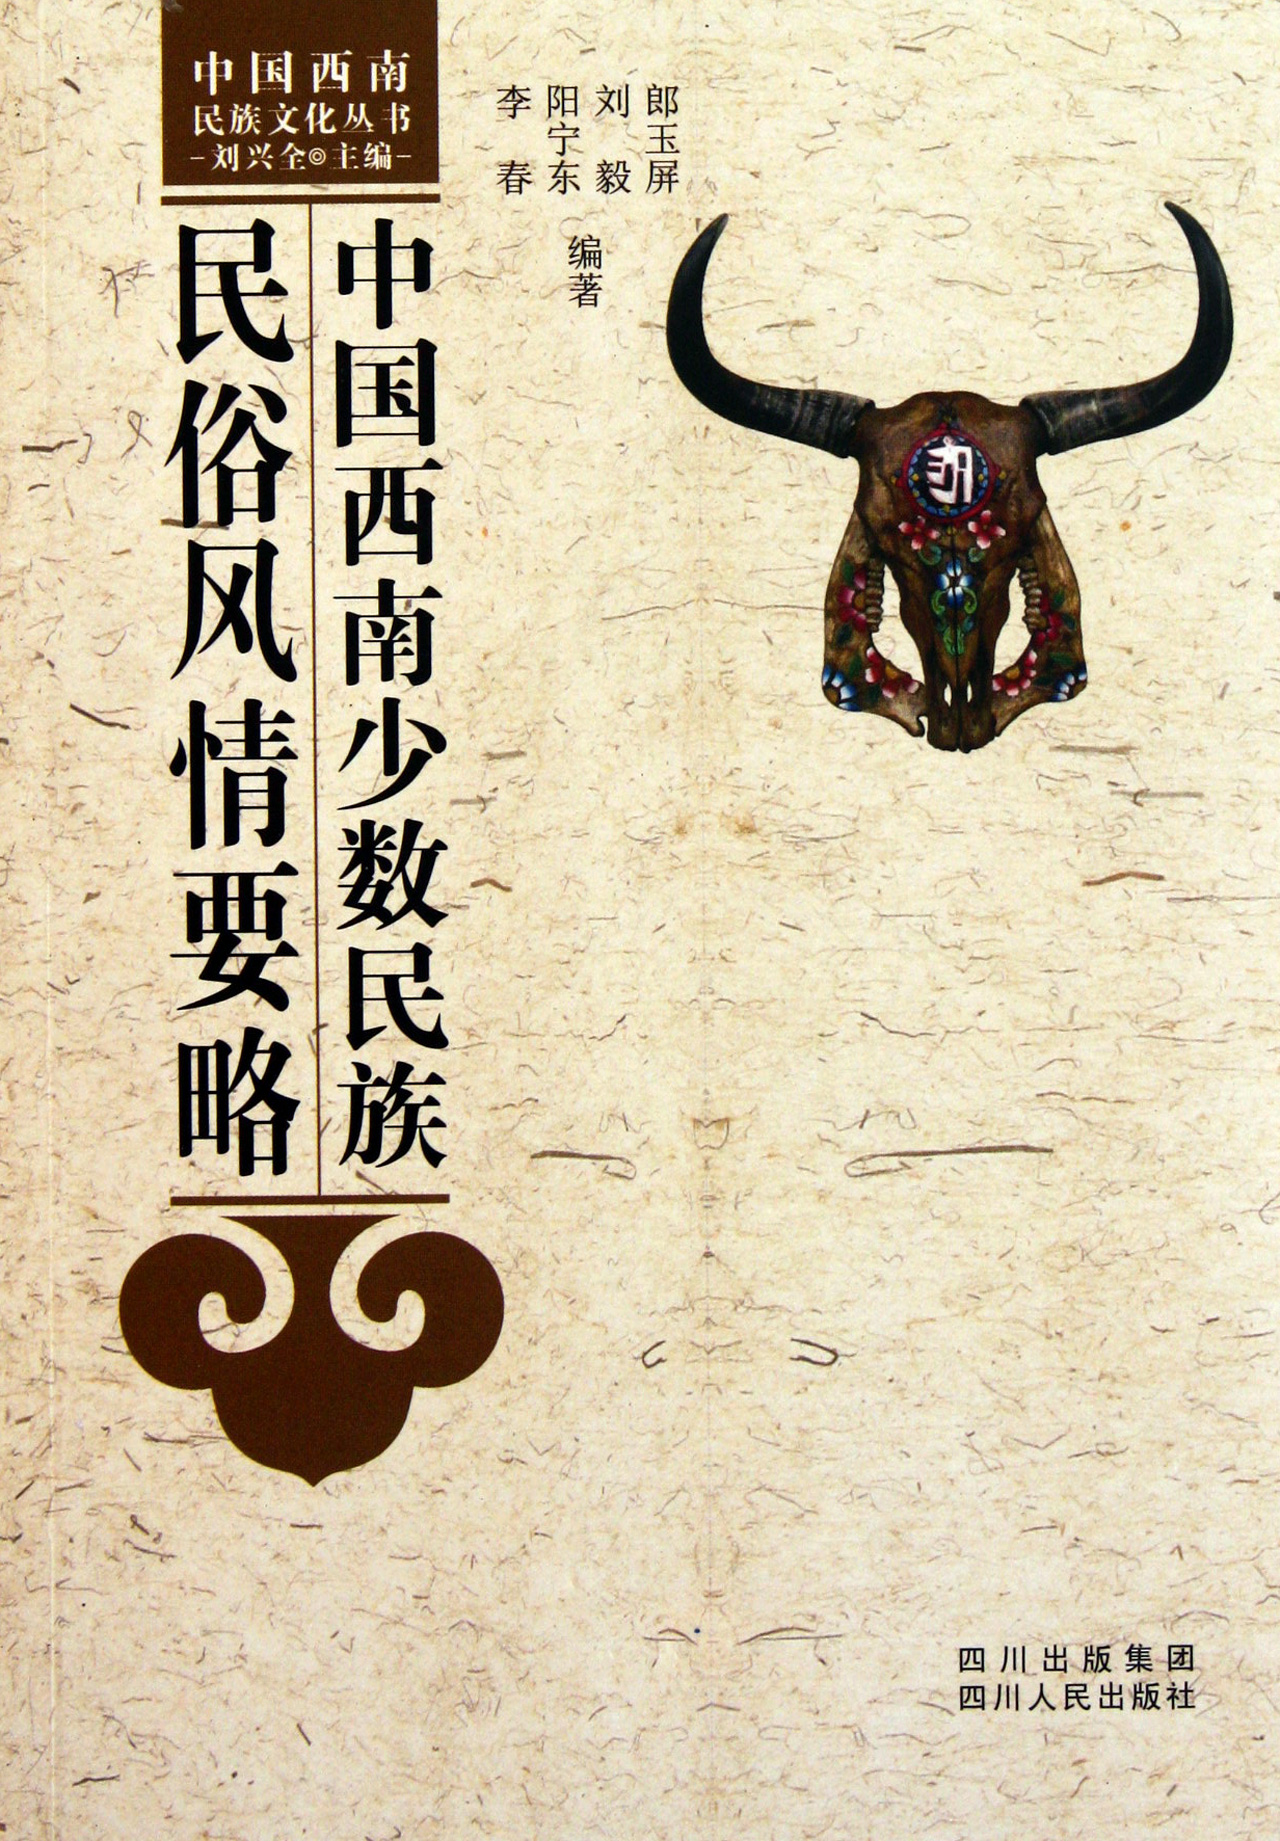 中国西南
民族文化丛书
-刘兴全◎主编-
郎玉屏
刘毅
阳宁东
李春
编著
中国西南少数民族
民俗风情要略
四川出版集团
四川人民出版社